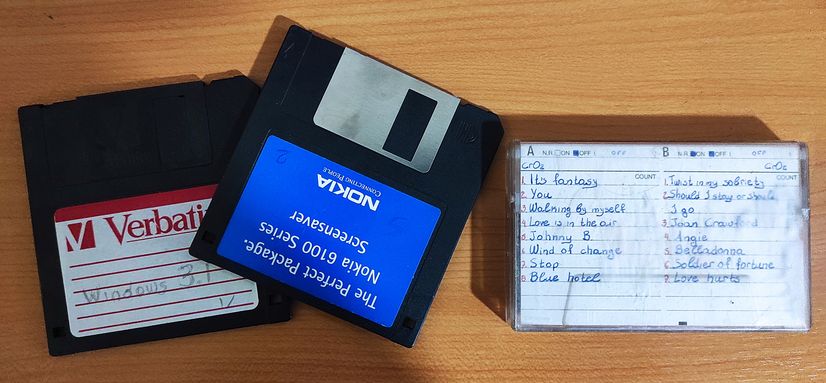 Verbati
Windows 3.1
NOKIA
CONNECTING PEOPLE
The Perfect Package.
Nokia 6100 Series
Screensaver
2
A N.R. ON OFF OFF
CrO2
COUNT
1. It's fantasy
2. You
3. Walking by myself
4. Love is in the air
5. Johnny B.
6. Wind of change
7. Stop
8. Blue hotel
B N.R. ON OFF OFF
CrO2
COUNT
1. Twist in my sobriety
2. Should I stay or should
I go
3. Joan Crawford
4. Angie
5. Belladonna
6. Soldier of fortune
7. Love hurts